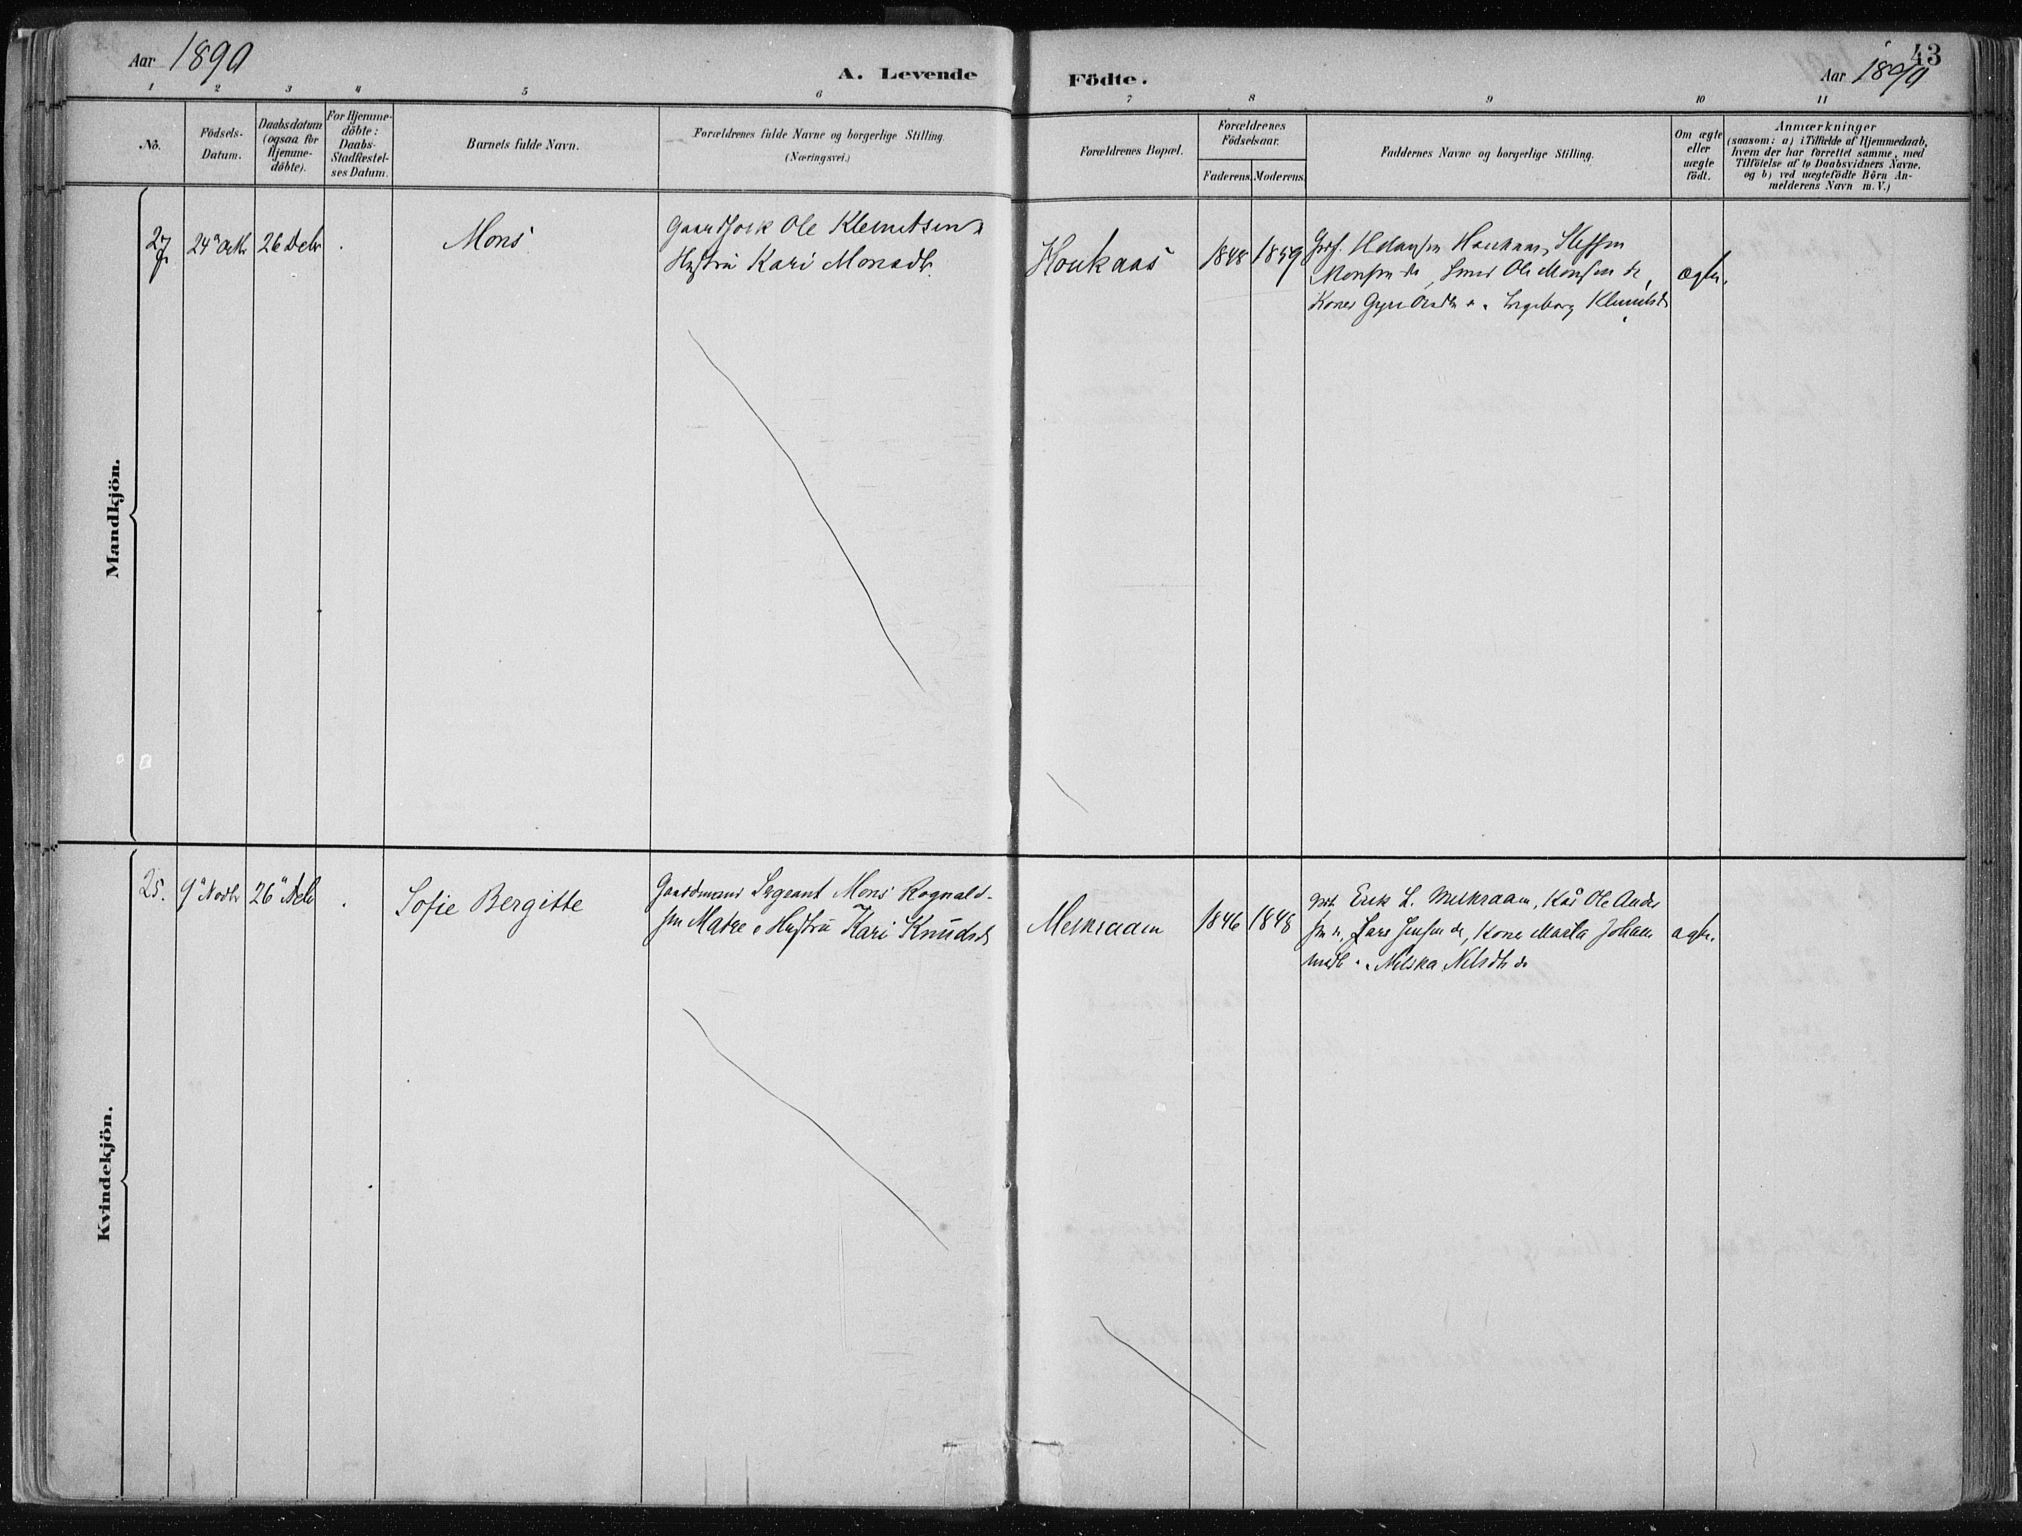 Aar 1890
A. Levende
Födte.
43
Aar 1890
1 2 3 4 5 6 7 8 9 10 11
No.
Födsels-
Datum.
Daabsdatum
(ogsaa for
Hjemme-
döbte).
For Hjemme-
döbte:
Daabs-
Stadfæstel-
ses Datum.
Barnets fulde Navn.
Forældrenes fulde Navne og borgerlige Stilling.
(Næringsvei.)
Forældrenes Bopæl.
Forældrenes
Födselsaar.
Faderens. Moderens.
Faddernes Navne og borgerlige Stilling.
Om ægte
eller
uægte
födt.
Anmærkninger
(saasom: a) i Tilfælde af Hjemmedaab,
hvem der har forrettet samme, med
Tilföielse af to Daabsvidners Navne,
og b) ved uægtefödte Börn An-
melderens Navn m. V.)
Mandkjön.
27 24 Octbr 26 Decbr Mons
Ole Klemetsen
Hustru Kari Monsdtr.
Houkaas 1848 1859
Monsen do, Ole Monsen do,
Koner Ingeborg Klemetsd
ægte.
Kvindekjön.
25. 9 Novbr 26 Decb Sofie Bergitte
Gaardmand Sergeant Mons Rognald-
sen Matre o Hustru Kari Knudsd
Meskraam 1846 1848
Erik L. Meskraam, Ole Ander
sen, Lars Jensen do, Kone Marta Johan
nesdtr Nilska Nilsdtr do
ægte.